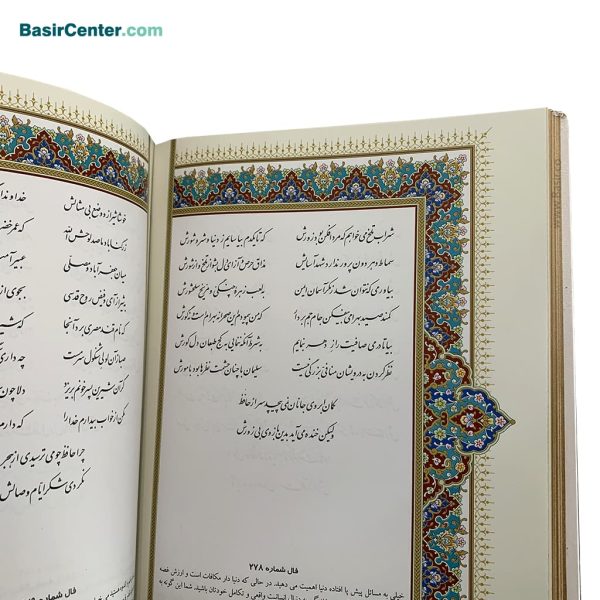 BasirCenter.com
شراب تلخ می‌خواهم که مردافکن بود زورش که تا یکدم بیاسایم ز دنیا و شر و شورش
سماط دهر دون پرور ندارد شهد آسایش مذاق حرص و آز ای دل بشو از تلخ و از شورش
بیاور می که نتوان شد ز مکر آسمان ایمن به لعب زهره چنگی و مریخ سلحشورش
کمند صید بهرامی بیفکن جام جم بردار که من پیمودم این صحرا نه بهرام است و نه گورش
بیا تا در می صافیت راز دهر بنمایم به شرط آنکه ننمایی به کج طبعان دل کورش
نظر کردن به درویشان منافی بزرگی نیست سلیمان با چنان حشمت نظرها بود با مورش
کمان ابروی جانان نمی‌پیچد سر از حافظ
ولیکن خنده می‌آید بدین بازوی بی زورش
فال شماره ۲۷۸
خیلی به مسائل پیش پا افتاده دنیا اهمیت می دهید. در حالی که دنیا دار مکافات است و ارزش غصه
خوشا شیراز و وضع بی‌مثالش خداوندا
ز رکناباد ما صد لوحش الله که عمر خضر
میان جعفرآباد و مصلی عبیر آمیـ
به شیراز آی و فیض روح قدسی بجوی از
که نام قند مصری برد آنجا که شیر
صبا زان لولی شنگول سرمست چه داری
گر آن شیرین پسر خونم بریزد دلا چون
مکن از خواب بیدارم خدا را که دارم
چرا حافظ چو می ترسیدی از هجر
نکردی شکر ایام وصالش
فال شماره